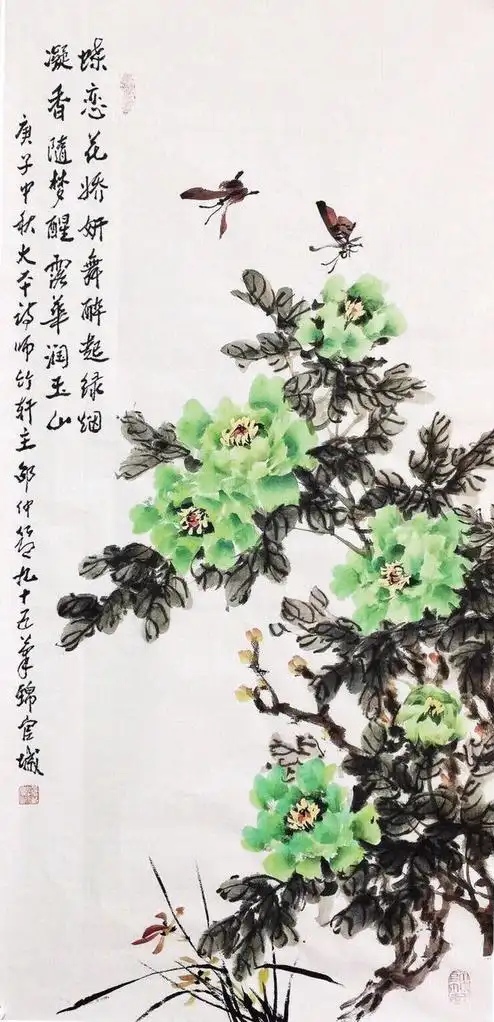 蝶恋花娇妍舞醉起绿烟
凝香隨梦醒露華润玉山
庚子中秋大本诗师竹轩主邵仲節九十五笔锦官城